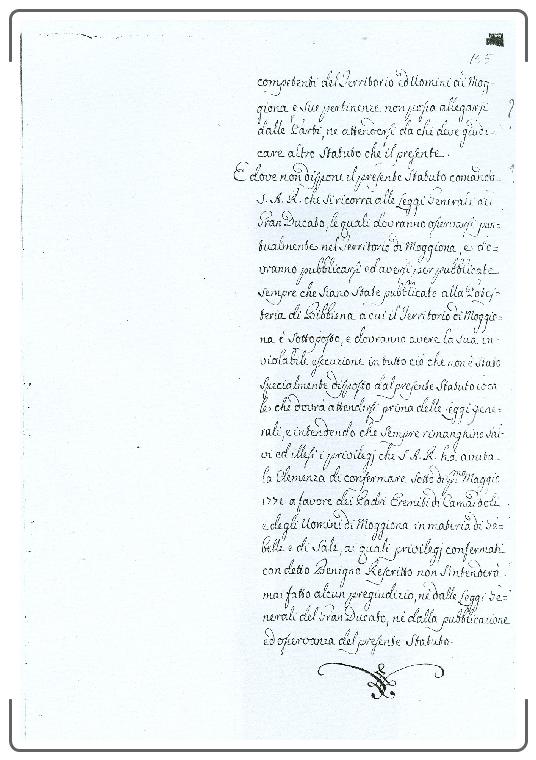 155
competenti del Territorio ed Uomini di Mog-
giona e sue pertinenze non possa allegarsi
dalle Parti, ne attendersi da chi deve giudi-
care altro Statuto che il presente.
E dove non dispone il presente Statuto comanda
S. A. R. che si ricorra alle Leggi Generali del
Gran Ducato, le quali dovranno osservarsi pun-
tualmente nel Territorio di Moggiona, e do-
vranno pubblicarsi ed aversi per pubblicate
sempre che siano state pubblicate alla Potes-
teria di Bibbiena a cui il Territorio di Moggio-
na è sottoposto, e dovranno avere la sua in-
violabile esecuzione in tutto ciò che non è stato
specialmente disposto dal presente Statuto loca-
le che dovrà attendersi prima delle Leggi gene-
rali, e intendendo che sempre rimanghino sal-
vi ed illesi i privilegj che S. A. R. ha avuta
la Clemenza di confermare sotto dì Maggio
1771 a favore dei Padri Eremiti di Camaldoli
e degli Uomini di Moggiona in materia di Ga-
belle e di Sale, a quali privilegj confermati
con detto Benigno Rescritto non s'intenderà
mai fatto alcun pregiudizio, nè dalle Leggi Ge-
nerali del Gran Ducato, nè dalla pubblicazione
ed osservanza del presente Statuto.